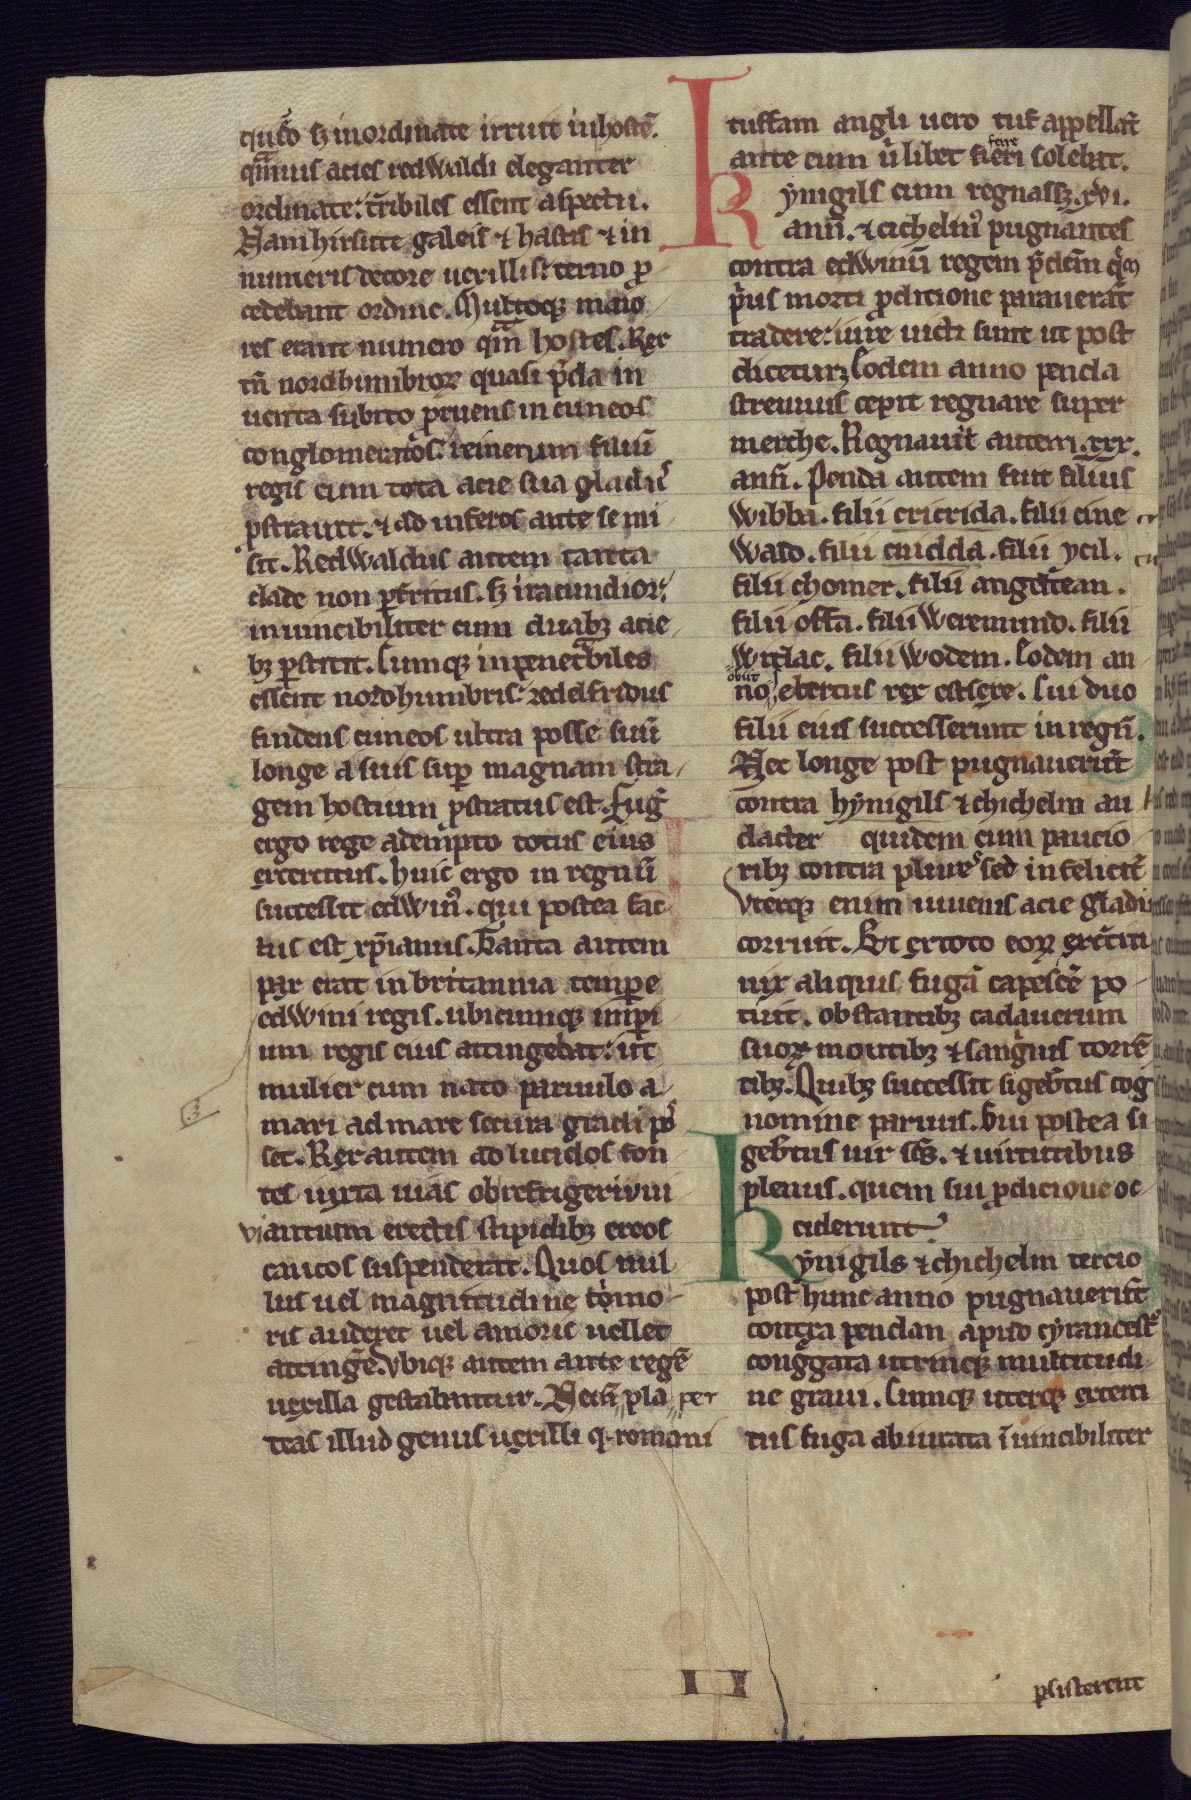 quẽdo sꝫ inordinate irruit in hostẽ.
qͣmuis acies redwaldi eleganter
ordinate: t̃ribiles essent aspectu.
Nam hirsute galeis ⁊ hastis ⁊ in
numeris decore uexillis: terno ꝓ
cedebant ordine. Multoqꝫ maio
res erant numero qͣm hostes. Rex
tñ nordhumbroꝝ quasi p̃da in
uenta subito ꝑueniens in cuneos
conglomeratos: reinerum filiũ
regis cum tota acie sua gladiis
ꝓstrauit. ⁊ ad inferos ante se mi
sit. Redwaldus autem tanta
clade non ꝑt̃ritus. sꝫ iracundior:
inuincibiliter cum duabꝫ acie
bꝫ ꝑstitit. Cumqꝫ inpenetͣbiles
essent nordhumbris: redelfridus
findens cuneos ultra posse suũ
longe a suis suꝑ magnam stra
gem hostium ꝓstratus est. Fug̃
ergo rege adempto totus eius
exercitus. huic ergo in regnũ
successit edwinꝰ. qui postea fac
tus est xp̃ianus. Tanta autem
pax erat in britannia tempore
edwini regis. ubicumqꝫ imꝑi
um regis eius attingebat: ut
mulier cum nato paruulo a
mari ad mare secura gradi pos
set. Rex autem ad lucidos fon
tes iuxta uias ob refrigerium
viantium erectis stipidibꝫ ereos
caucos suspenderat. Quos nul
lus uel magnitudine timo
ris auderet uel amoris uellet
atting̃e. Vbiqꝫ autem ante regẽ
uexilla gestabantur. Necñ pla per
teas illud genus uexilli q̃ romani
tuffam angli uero tuf appellãt
ante eum ũlibet fieri fere solebat.
Kynigils cum regnassꝫ .xvi.
ann̄. ⁊ cichelmꝰ pugnantes
contra edwinũ regem p̃dc̃m qͣm
pͥus morti ꝓdicione parauerãt
tradere: iure uicti sunt ut post
dicetur. Eodem anno penda
strenuus cepit regnare super
merche. Regnauit autem .xxx.
ann̄. Penda autem fuit filius
wibba. filii cricrida. filii cine
wald. filii cnidda. filii ycil.
filii chomer. filii angeltean.
filii offa. filii weremund. filii
witlac. filii wodem. Eodem an
no obiit sebertus rex estsexe. Cui duo
filii eius successerunt in regñ.
Nec longe post pugnauerũt
contra kynigils ⁊ chichelm au
dacter quidem cum paucio
ribꝫ contra plures sed infelicit̃
Vterqꝫ enim iuuenis acie gladii
corruit. Et ex toto eoꝝ exc̃itu
uix aliquis fugã capesc̃e po
tuit. obstantibꝫ cadauerum
suoꝝ montibꝫ ⁊ sanguis torrẽ
tibꝫ. Quibꝫ successit sigeb̃tus cog
nomine paruus. Cui postea si
geb̃tus uir sc̃s. ⁊ uirtutibus
plenus. quem sui ꝓdicione oc
ciderunt.
Kynigils ⁊ chichelm tercio
post hunc anno pugnauerũt
contra pendan apud cyrancestͬ
cong̃gata utrinqꝫ multitudi
ne graui. Cumqꝫ uterqꝫ exerci
tus fuga abiurata ĩuincibiliter
II
ꝑsisterent